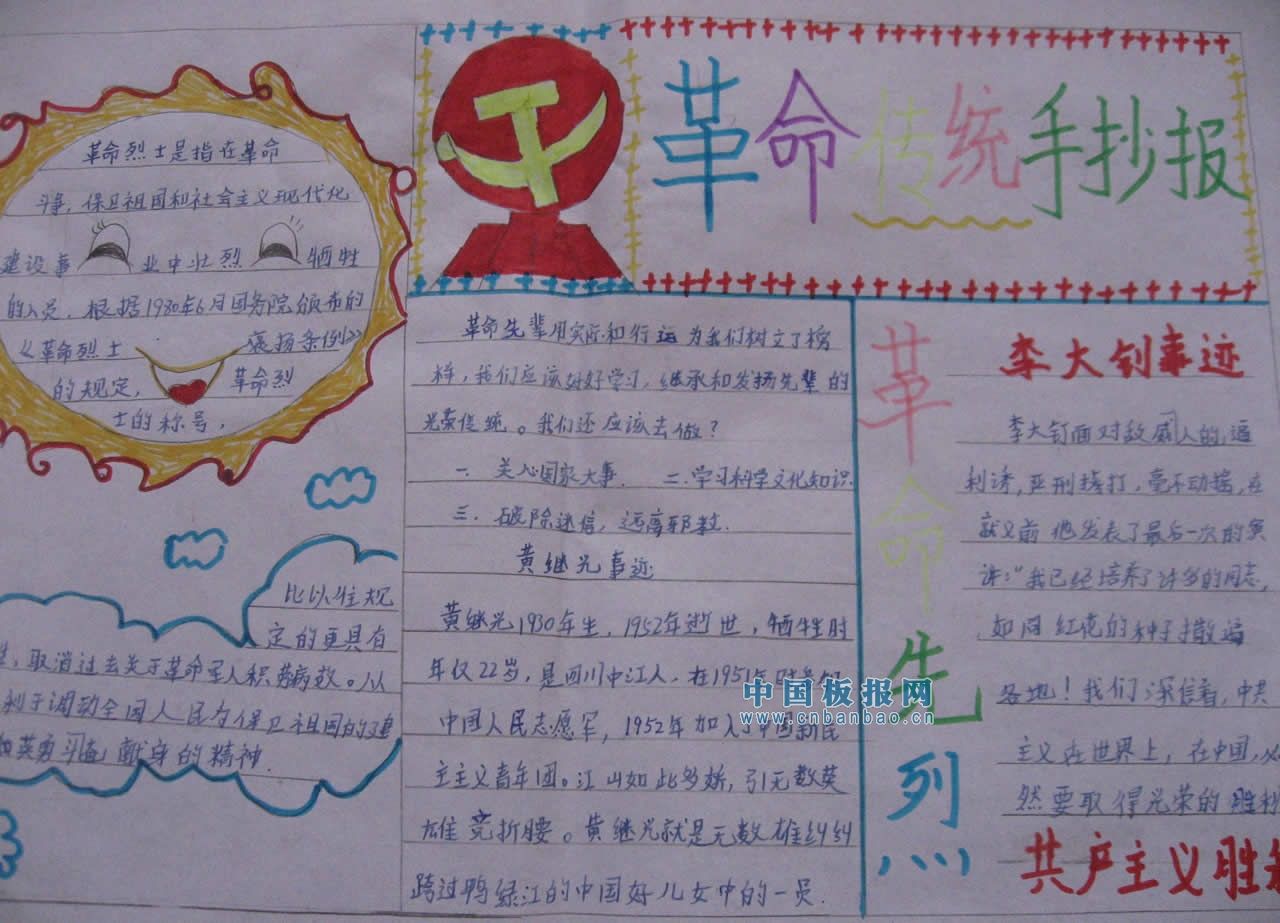 革命传统手抄报
革命烈士是指在革命
斗争，保卫祖国和社会主义现代化
建设事业中壮烈牺牲
的人员，根据1980年6月国务院颁布的
《革命烈士褒扬条例》
的规定，革命烈
士的称号，
比以往规
定的更具有
性，取消过去关于革命军人积劳病故。从
利于调动全国人民为保卫祖国的建
和英勇斗奋献身的精神．
革命先辈用实际和行运为我们树立了榜
样，我们应该好好学习，继承和发扬先辈的
光荣传统。我们还应该去做？
一．关心国家大事． 二．学习科学文化知识．
三．破除迷信，远离邪教．
黄继光事迹
黄继光1930年生，1952年逝世，牺牲时
年仅22岁，是四川中江人，在1951年
中国人民志愿军，1952年加入了中国新民
主主义青年团。江山如此多娇，引无数英
雄竞折腰。黄继光就是无数雄纠纠
跨过鸭绿江的中国好儿女中的一员．
革命先烈
李大钊事迹
李大钊面对敌人的
利诱，严刑拷打，毫不动摇，在
就义前他发表了最后一次的演
讲：“我已经培养了许多的同志，
如同红花的种子撒遍
各地！我们深信着，中共
主义在世界上，在中国，必
然要取得光荣的胜利
共产主义胜利
中国板报网
www.cnbanbao.cn